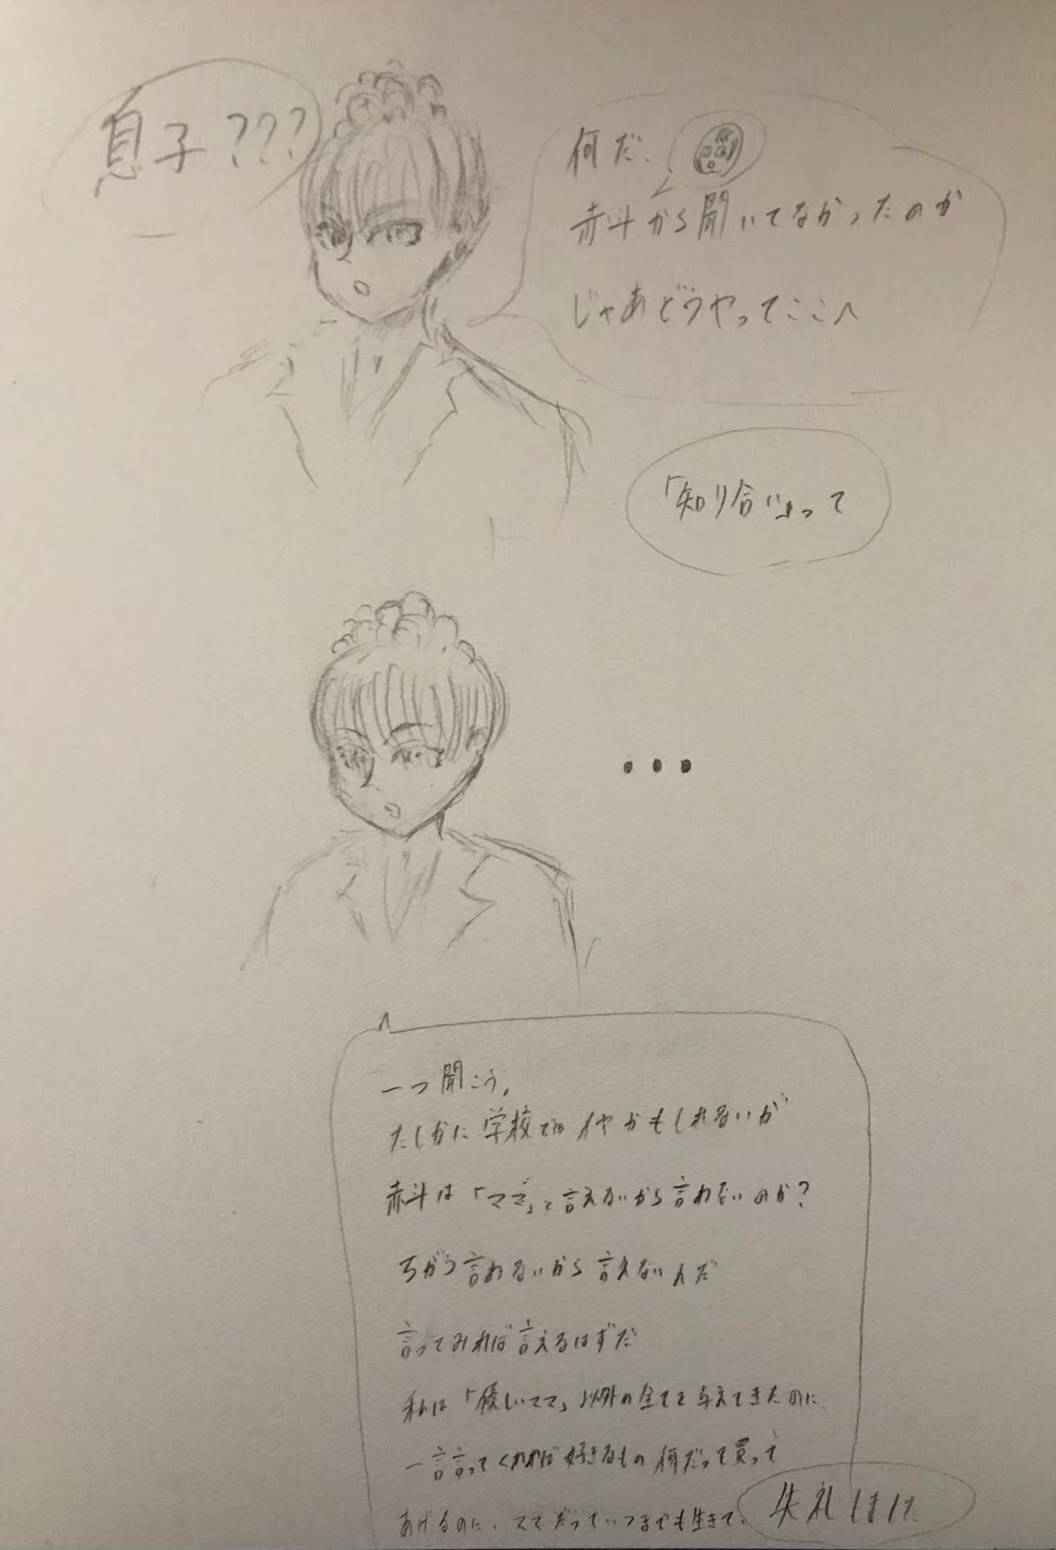 息子???
何だ、
赤斗から聞いてなかったのか
じゃあどうやってここへ
「知り合い」って
・・・
一つ聞こう。
たしかに学校ではイヤかもしれないが
赤斗は「ママ」と言えないから言わないのか?
ちがう言わないから言えないんだ
言ってみれば言えるはずだ
私は「優しいママ」以外の全てを与えてきたのに
一言言ってくれれば好きなもの何だって買って
あげるのに、ママだっていつまでも生きて、
失礼しました